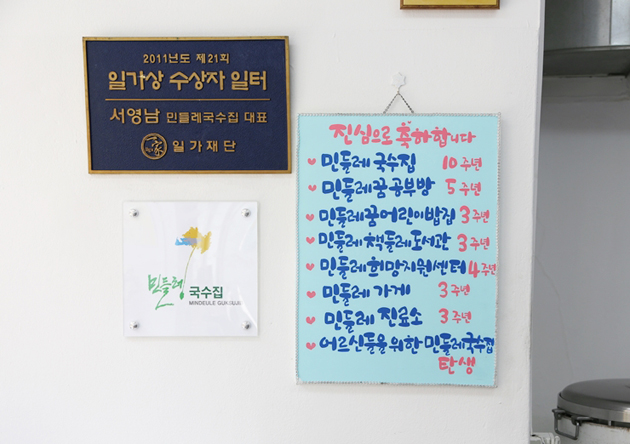 2011년도 제21회
일가상 수상자 일터
서영남 민들레국수집 대표
일가재단
민들레 국수집
MINDEULE GUKSUJIB
진심으로 축하합니다
민들레 국수집 10주년
민들레꿈 공부방 5주년
민들레꿈 어린이밥집 3주년
민들레 책들레도서관 3주년
민들레희망지원센터 4주년
민들레 가게 3주년
민들레 진료소 3주년
어르신들을 위한 민들레국수집
탄생